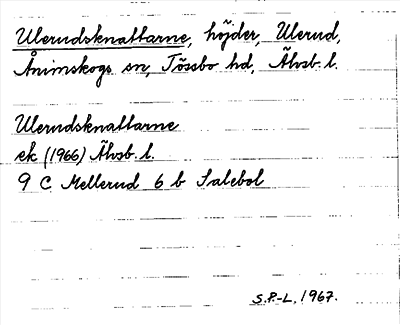 Ulerudsknattarne, höjder, Ulerud,
Ånimskogs sn, Tössbo hd, Älvsb. l.
Ulerudsknattarne
ek (1966) Älvsb. l.
9 C Mellerud 6 b Salebol
S.P.-L. 1967.